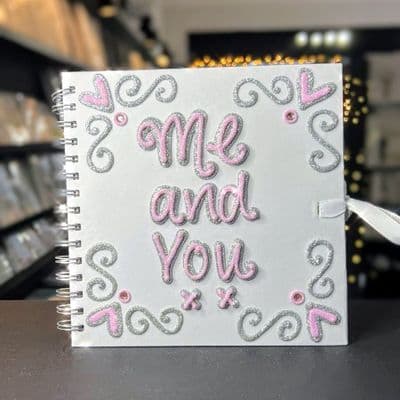 Me
and
You
xx